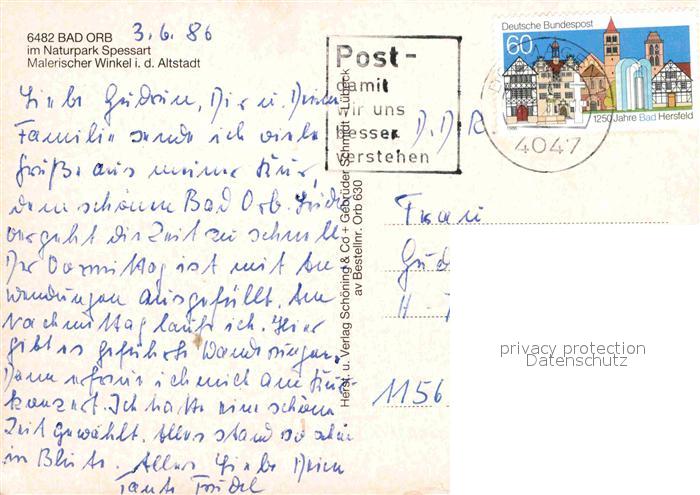 6482 BAD ORB 3.6.86
im Naturpark Spessart
Malerischer Winkel i. d. Altstadt
Liebe Gudrun, Dir u. Deiner
Familie sende ich viele
Grüße aus meiner Kur,
dem schönen Bad Orb. Leider
vergeht die Zeit zu schnell.
Der Vormittag ist mit An
wendungen ausgefüllt. Am
Nachmittag laufe ich. Hier
gibt es geführte Wanderungen.
Dann erfreue ich mich am Kur-
konzert. Ich hatte eine schöne
Zeit gewählt. Alles stand so schön
in Blüte. Alles Liebe Deine
Tante Friedel
Herst. u. Verlag Schöning & Co + Gebrüder Schmidt - Lübeck
av Bestellnr. Orb 630
Post-
damit
wir uns
besser
verstehen
Deutsche Bundespost
60
1250 Jahre Bad Hersfeld
4047
D.D.R
Frau
Gud
H
1156
privacy protection
Datenschutz